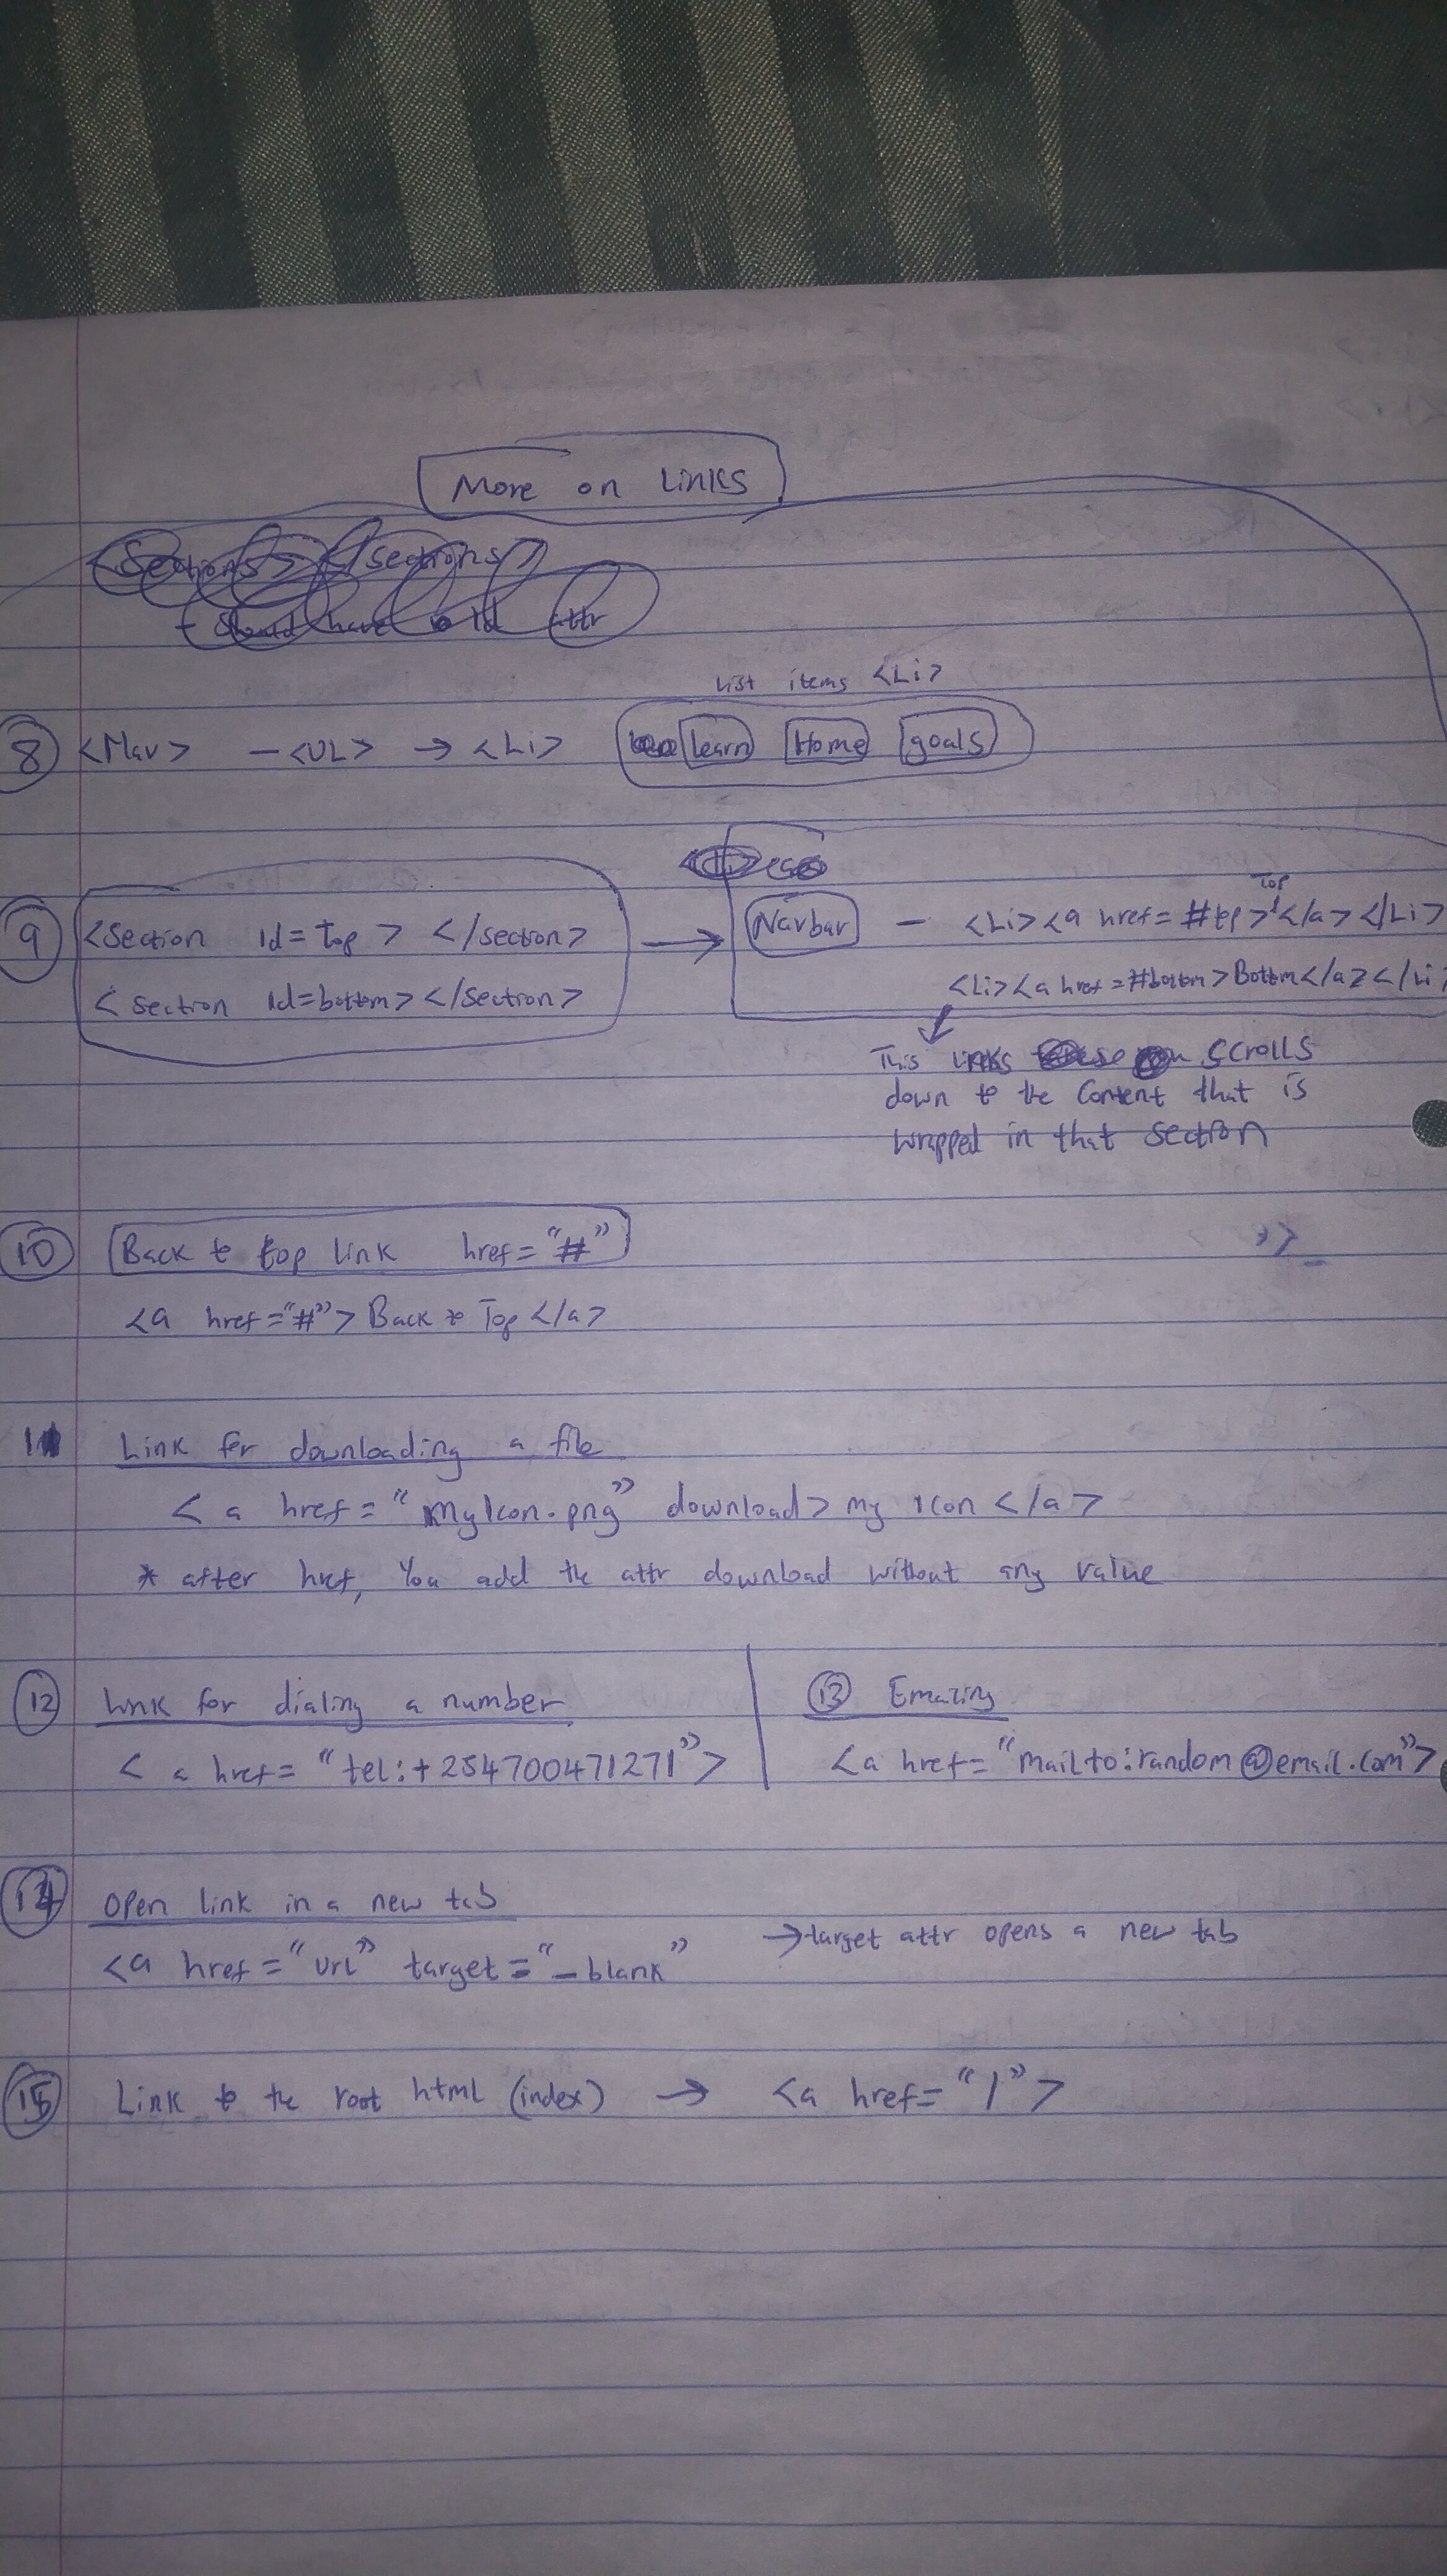 More on Links
<Sections> </sections>
- should have Id attr
List items <Li>
8 <Nav> - <UL> → <Li> learn Home goals
9 <Section Id = Top > </section> → Navbar - <Li><a href = #top >Top</a></Li>
<section Id=bottom></section> <Li><a href = #bottom>Bottom</a></Li>
This links scrolls
down to the content that is
wrapped in that section
10 Back to top link href = "#"
<a href = "#"> Back to Top </a>
11 Link for downloading a file
< a href = "myIcon.png" download> my icon </a>
* after href, You add the attr download without any value
12 Link for dialing a number
< a href = "tel:+254700471271">
13 Emailing
<a href = "mailto:random@email.com">
14 Open link in a new tab
<a href = "url" target = "_blank" → target attr opens a new tab
15 Link to the root html (index) → <a href = "/">